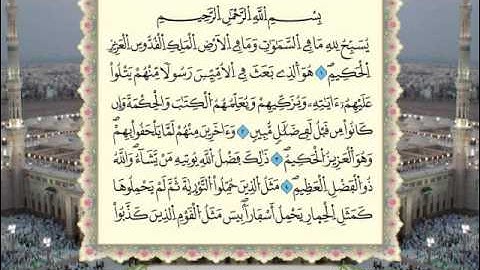 بِسْمِ اللَّهِ الرَّحْمَٰنِ الرَّحِيمِ
يُسَبِّحُ لِلَّهِ مَا فِي السَّمَٰوَٰتِ وَمَا فِي الْأَرْضِ الْمَلِكِ الْقُدُّوسِ الْعَزِيزِ
الْحَكِيمِ ۝١ هُوَ الَّذِي بَعَثَ فِي الْأُمِّيِّينَ رَسُولًا مِّنْهُمْ يَتْلُوا
عَلَيْهِمْ ءَايَٰتِهِ وَيُزَكِّيهِمْ وَيُعَلِّمُهُمُ الْكِتَٰبَ وَالْحِكْمَةَ وَإِن
كَانُوا مِن قَبْلُ لَفِي ضَلَٰلٍ مُّبِينٍ ۝٢ وَءَاخَرِينَ مِنْهُمْ لَمَّا يَلْحَقُوا بِهِمْ
وَهُوَ الْعَزِيزُ الْحَكِيمُ ۝٣ ذَٰلِكَ فَضْلُ اللَّهِ يُؤْتِيهِ مَن يَشَاءُ وَاللَّهُ
ذُو الْفَضْلِ الْعَظِيمِ ۝٤ مَثَلُ الَّذِينَ حُمِّلُوا التَّوْرَىٰةَ ثُمَّ لَمْ يَحْمِلُوهَا
كَمَثَلِ الْحِمَارِ يَحْمِلُ أَسْفَارًا بِئْسَ مَثَلُ الْقَوْمِ الَّذِينَ كَذَّبُوا